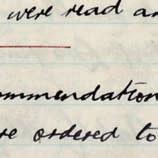 were read an
ommendation
re ordered to